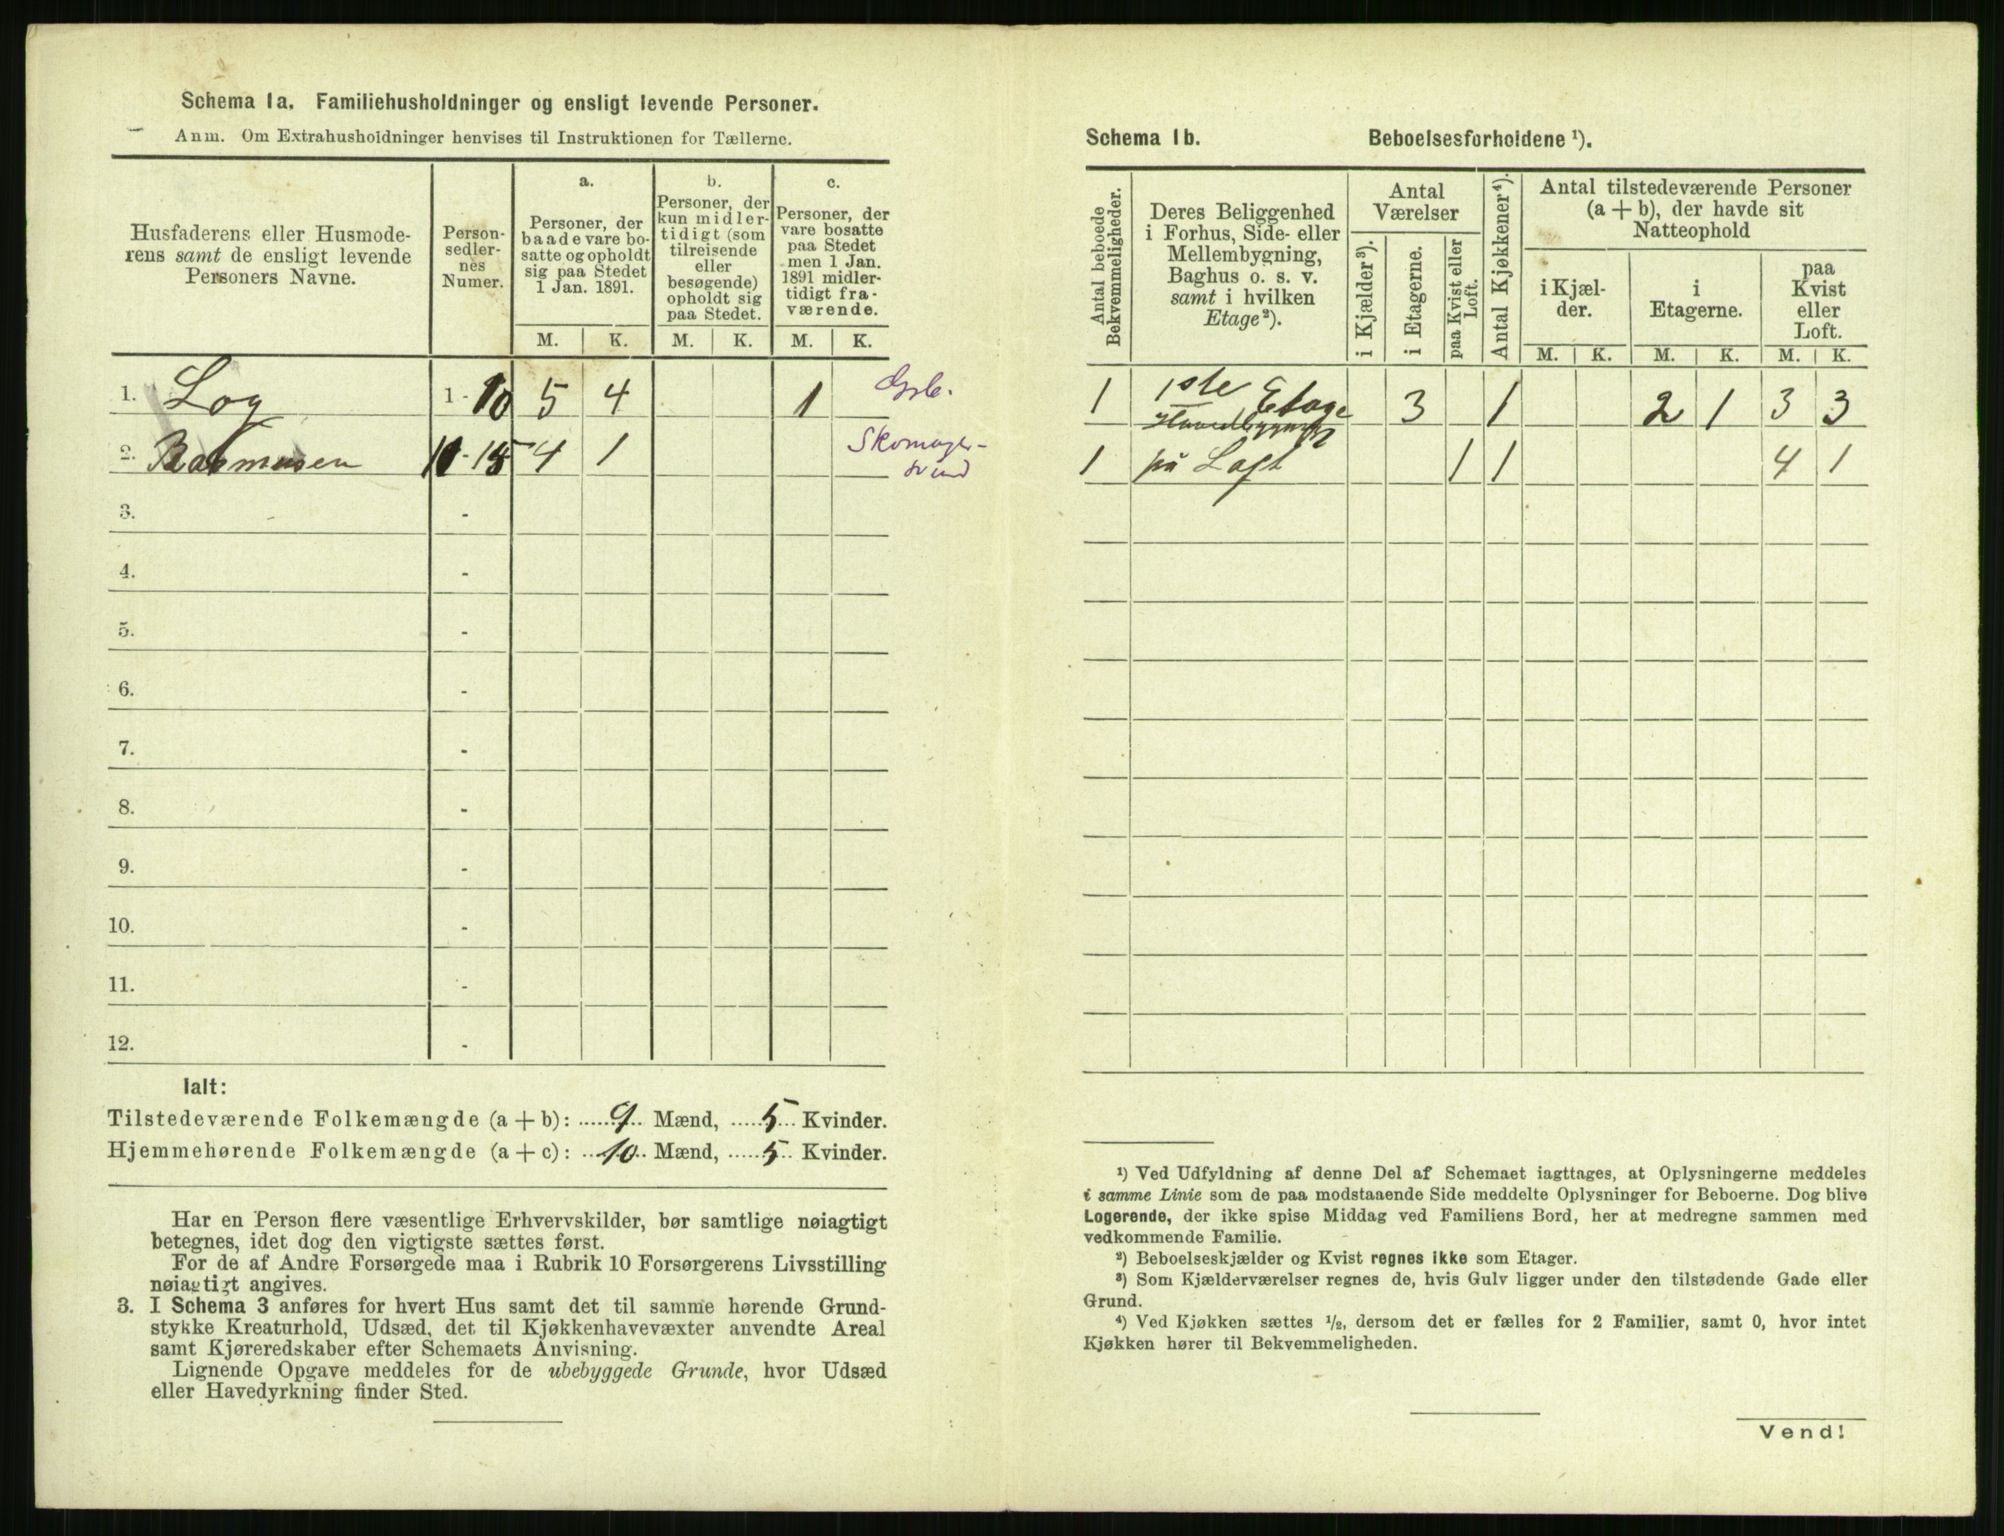 Schema 1a. Familiehusholdninger og ensligt levende Personer.
Anm. Om Extrahusholdninger henvises til Instruktionen for Tællerne.
Husfaderens eller Husmode-
rens samt de ensligt levende
Personers Navne.
Person-
sedler-
nes
Numer.
a.
Personer, der
baade vare bo-
satte og opholdt
sig paa Stedet
1 Jan. 1891.
b.
Personer, der
kun midler-
tidigt (som
tilreisende
eller
besøgende)
opholdt sig
paa Stedet.
c.
Personer, der
vare bosatte
paa Stedet
men 1 Jan.
1891 midler-
tidigt fra-
værende.
M. K. M. K. M. K.
1. Log 1 - 10 5 4 1
2. Rasmusen 11 - 15 4 1 Skomager-
svend
3. -
4. -
5. -
6. -
7. -
8. -
9. -
10. -
11. -
12. -
Ialt:
Tilstedeværende Folkemængde (a + b): 9 Mænd, 5 Kvinder.
Hjemmehørende Folkemængde (a + c): 10 Mænd, 5 Kvinder.
Har en Person flere væsentlige Erhvervskilder, bør samtlige nøiagtigt
betegnes, idet dog den vigtigste sættes først.
For de af Andre Forsørgede maa i Rubrik 10 Forsørgerens Livsstilling
nøiagtigt angives.
3. I Schema 3 anføres for hvert Hus samt det til samme hørende Grund-
stykke Kreaturhold, Udsæd, det til Kjøkkenhavevæxter anvendte Areal
samt Kjøreredskaber efter Schemaets Anvisning.
Lignende Opgave meddeles for de ubebyggede Grunde, hvor Udsæd
eller Havedyrkning finder Sted.
Schema 1b. Beboelsesforholdene ¹).
Antal beboede
Bekvemmeligheder.
Deres Beliggenhed
i Forhus, Side- eller
Mellembygning,
Baghus o. s. v.
samt i hvilken
Etage ²).
Antal
Værelser
i Kjælder ³).
i Etagerne.
paa Kvist eller
Loft.
Antal Kjøkkener ⁴).
Antal tilstedeværende Personer
(a + b), der havde sit
Natteophold
i Kjæl-
der.
i
Etagerne.
paa
Kvist
eller
Loft.
M. K. M. K. M. K.
1 1ste Etage 3 1 2 1 3 3
Hovedbygning
1 på Loft 1 1 4 1
¹) Ved Udfyldning af denne Del af Schemaet iagttages, at Oplysningerne meddeles
i samme Linie som de paa modstaaende Side meddelte Oplysninger for Beboerne. Dog blive
Logerende, der ikke spise Middag ved Familiens Bord, her at medregne sammen med
vedkommende Familie.
²) Beboelseskjælder og Kvist regnes ikke som Etager.
³) Som Kjælderværelser regnes de, hvis Gulv ligger under den tilstødende Gade eller
Grund.
⁴) Ved Kjøkken sættes ½, dersom det er fælles for 2 Familier, samt 0, hvor intet
Kjøkken hører til Bekvemmeligheden.
Vend!